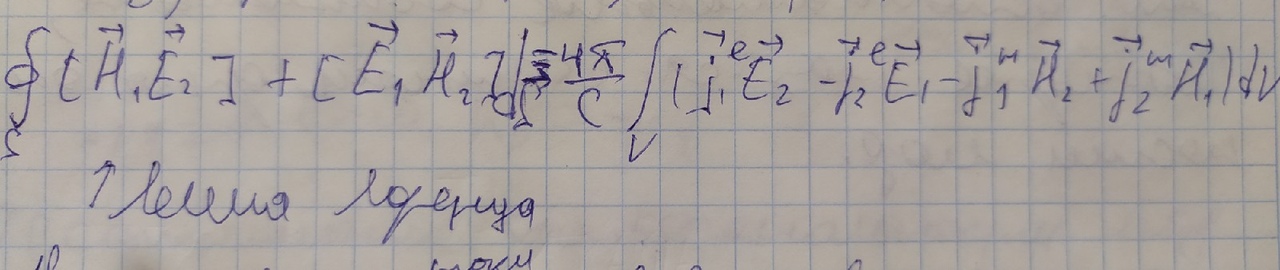 ∮_S {[H⃗₁E⃗₂] + [E⃗₁H⃗₂]} dS⃗ = 4π/c ∫_V (j⃗₁ᵉE⃗₂ - j⃗₂ᵉE⃗₁ - j⃗₁ᵐH⃗₂ + j⃗₂ᵐH⃗₁) dV
↑ Лемма Лоренца
токи